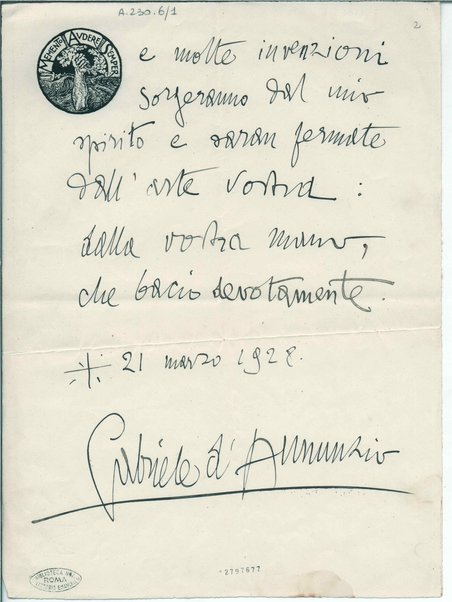 A.230.6/1
2
MEMENTO AVDERE SEMPER
e molte invenzioni
sorgeranno dal mio
spirito e saran fermate
dall'arte vostra:
dalla vostra mano,
che bacio devotamente.
21 marzo 1928.
Gabriele d'Annunzio
BIBLIOTECA NAZ
ROMA
VITTORIO EMANUELE
2797677